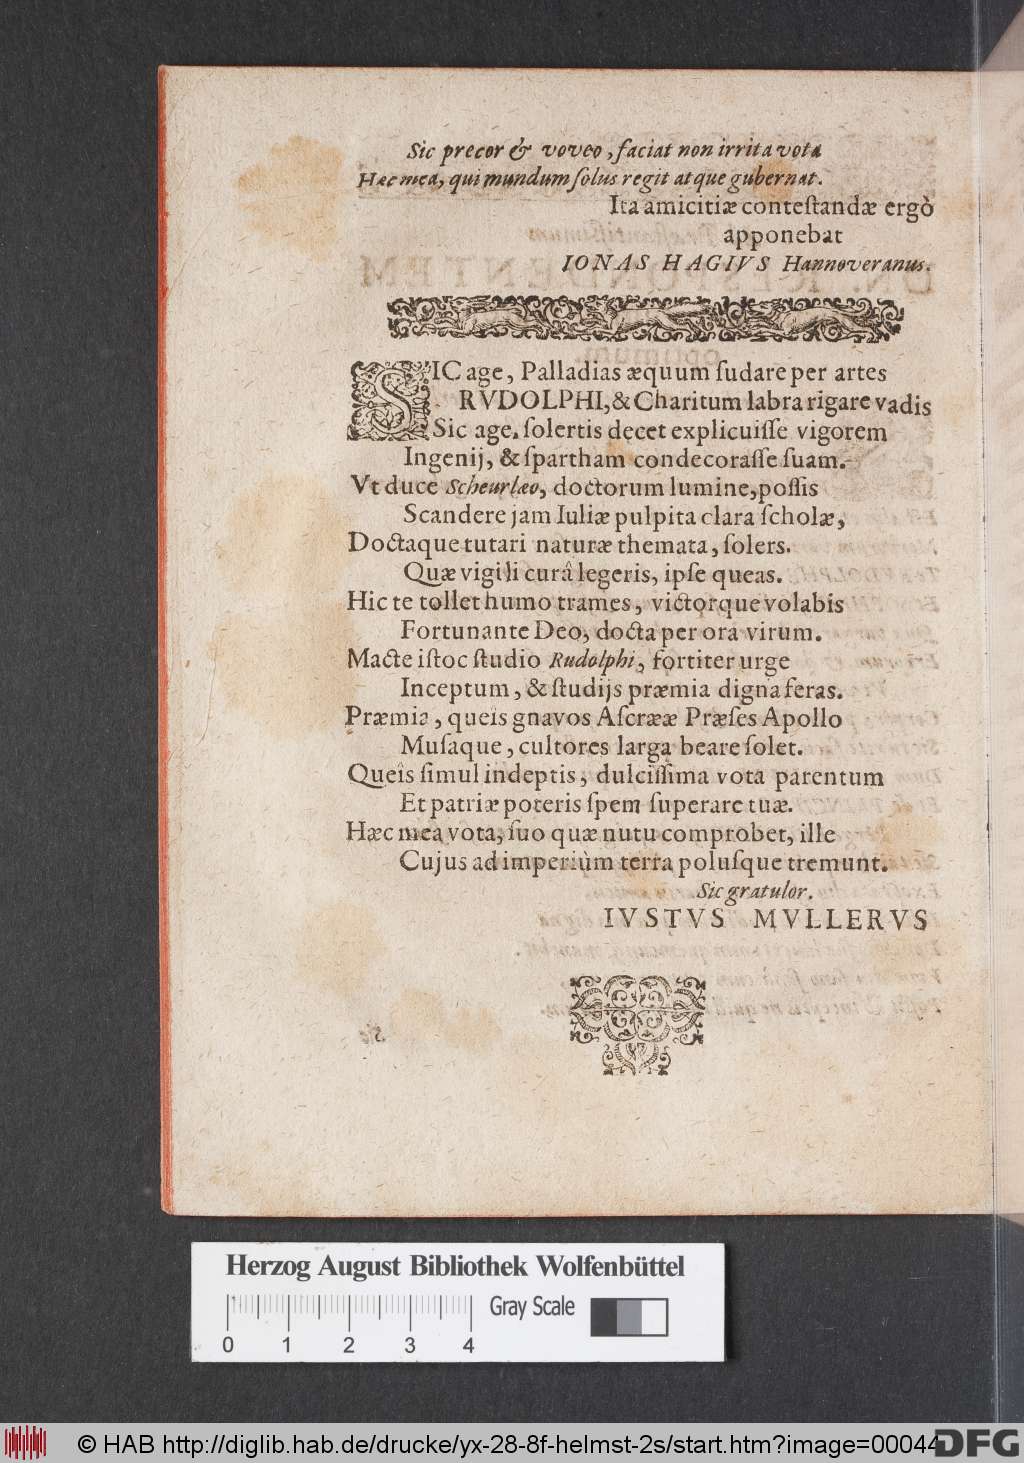 Sic precor & voveo, faciat non irrita vota
Hæc mea, qui mundum ſolus regit atque gubernat.
Ita amicitiæ conteſtandæ ergò
apponebat
IONAS HAGIVS Hannoveranus.
SIC age, Palladias æquum ſudare per artes
RVDOLPHI, & Charitum labra rigare vadis
Sic age, ſolertis decet explicuiſſe vigorem
Ingenij, & ſpartham condecoraſſe ſuam.
Vt duce Scheurlæo, doctorum lumine, poſſis
Scandere jam Iuliæ pulpita clara ſcholæ,
Doctaque tutari naturæ themata, ſolers.
Quæ vigili curâ legeris, ipſe queas.
Hic te tollet humo trames, victorque volabis
Fortunante Deo, docta per ora virum.
Macte iſtoc ſtudio Rudolphi, fortiter urge
Inceptum, & ſtudijs præmia digna feras.
Præmia, queis gnavos Aſcrææ Præſes Apollo
Muſaque, cultores larga beare ſolet.
Queîs ſimul indeptis, dulciſſima vota parentum
Et patriæ poteris ſpem ſuperare tuæ.
Hæc mea vota, ſuo quæ nutu comprobet, ille
Cujus ad imperiùm terra poluſque tremunt.
Sic gratulor.
IVSTVS MVLLERVS
Herzog August Bibliothek Wolfenbüttel
Gray Scale
0 1 2 3 4
© HAB http://diglib.hab.de/drucke/yx-28-8f-helmst-2s/start.htm?image=00044
DFG